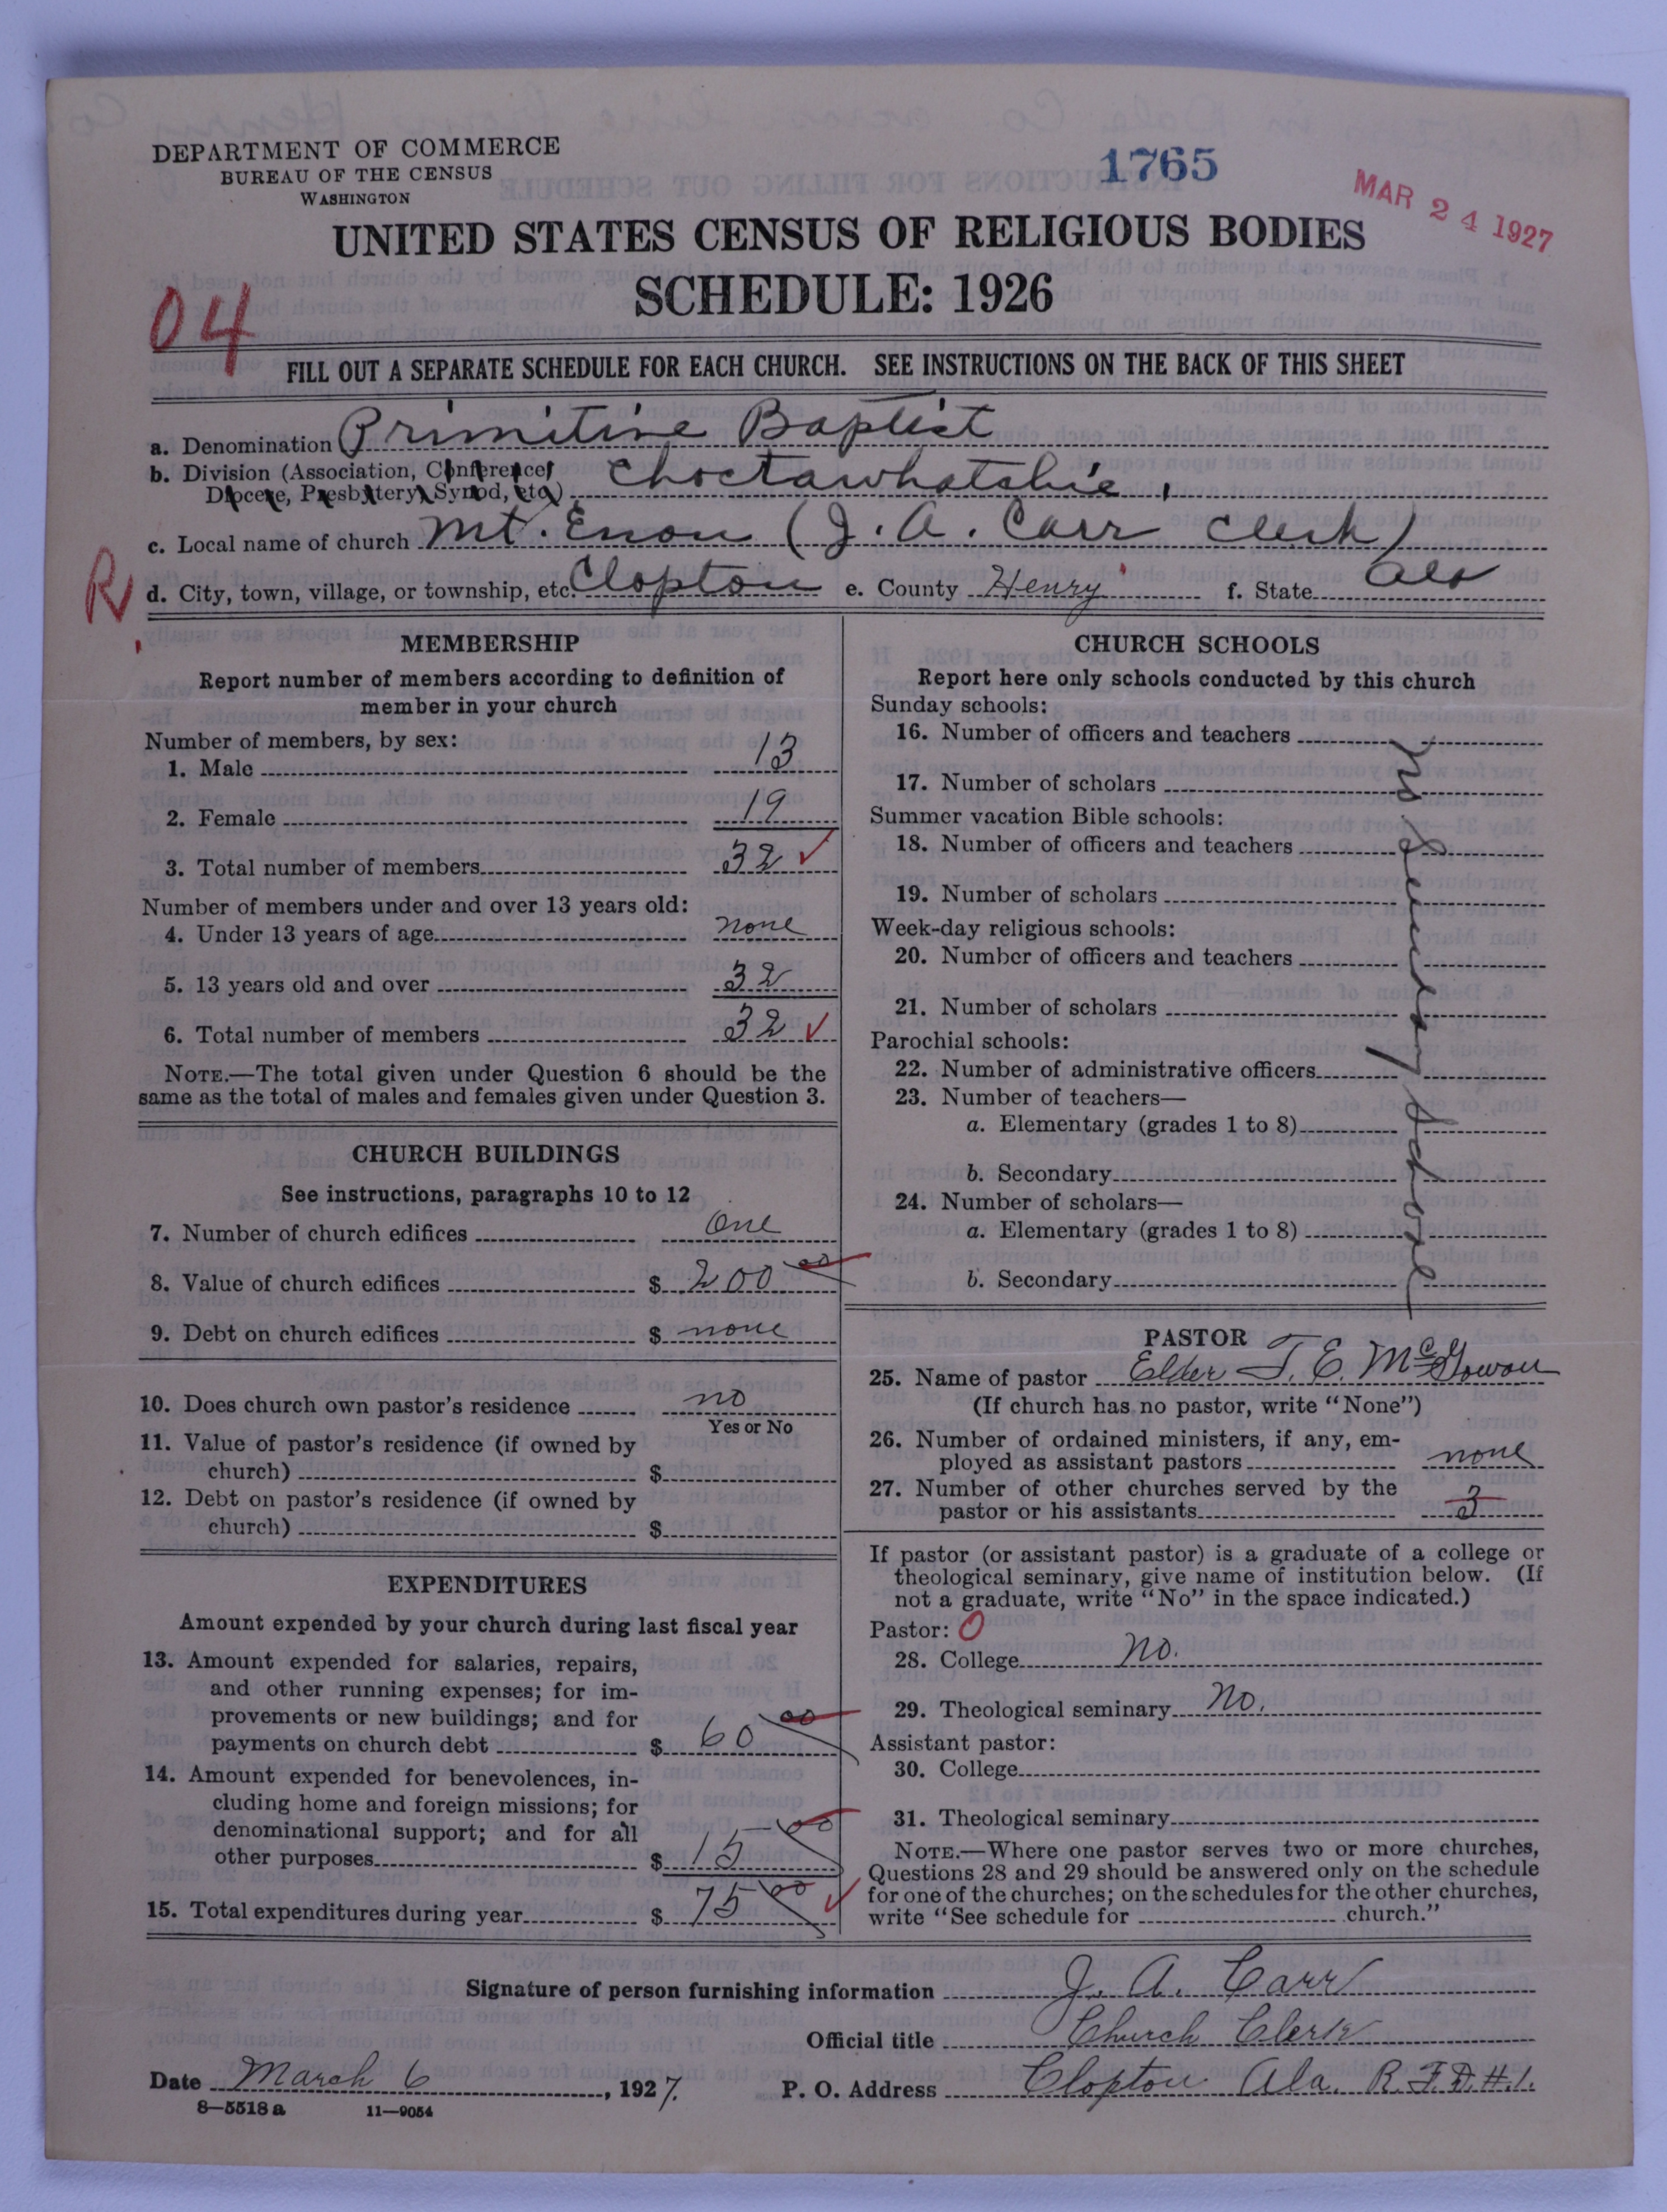 DEPARTMENT OF COMMERCE
BUREAU OF THE CENSUS
WASHINGTON
1765
MAR 24 1927
UNITED STATES CENSUS OF RELIGIOUS BODIES
SCHEDULE: 1926
04
FILL OUT A SEPARATE SCHEDULE FOR EACH CHURCH. SEE INSTRUCTIONS ON THE BACK OF THIS SHEET
a. Denomination Primitive Baptist
b. Division (Association, Conference,
Diocese, Presbytery, Synod, etc.) Choctawhatchie.
c. Local name of church Mt. Enon (J. A. Carr Clerk)
R
d. City, town, village, or township, etc. Clopton e. County Henry f. State Ala
MEMBERSHIP
Report number of members according to definition of
member in your church
Number of members, by sex:
1. Male 13
2. Female 19
3. Total number of members 32 ✓
Number of members under and over 13 years old:
4. Under 13 years of age none
5. 13 years old and over 32
6. Total number of members 32 ✓
NOTE.—The total given under Question 6 should be the
same as the total of males and females given under Question 3.
CHURCH BUILDINGS
See instructions, paragraphs 10 to 12
7. Number of church edifices One
8. Value of church edifices $ 200 00
9. Debt on church edifices $ none
10. Does church own pastor's residence no
Yes or No
11. Value of pastor's residence (if owned by
church) $
12. Debt on pastor's residence (if owned by
church) $
EXPENDITURES
Amount expended by your church during last fiscal year
13. Amount expended for salaries, repairs,
and other running expenses; for im-
provements or new buildings; and for
payments on church debt $ 60 00
14. Amount expended for benevolences, in-
cluding home and foreign missions; for
denominational support; and for all
other purposes $ 15 00
15. Total expenditures during year $ 75 00 ✓
CHURCH SCHOOLS
Report here only schools conducted by this church
Sunday schools:
16. Number of officers and teachers
17. Number of scholars
Summer vacation Bible schools:
18. Number of officers and teachers
19. Number of scholars
Week-day religious schools:
20. Number of officers and teachers
21. Number of scholars
Parochial schools:
22. Number of administrative officers
23. Number of teachers—
a. Elementary (grades 1 to 8)
b. Secondary
24. Number of scholars—
a. Elementary (grades 1 to 8)
b. Secondary
PASTOR
25. Name of pastor Elder T. E. McGowan
(If church has no pastor, write "None")
26. Number of ordained ministers, if any, em-
ployed as assistant pastors none
27. Number of other churches served by the
pastor or his assistants 3
If pastor (or assistant pastor) is a graduate of a college or
theological seminary, give name of institution below. (If
not a graduate, write "No" in the space indicated.)
Pastor: O
28. College No.
29. Theological seminary No.
Assistant pastor:
30. College
31. Theological seminary
NOTE.—Where one pastor serves two or more churches,
Questions 28 and 29 should be answered only on the schedule
for one of the churches; on the schedules for the other churches,
write "See schedule for church."
Signature of person furnishing information J. A. Carr
Official title Church Clerk
Date March 6, 1927. P. O. Address Clopton Ala. R.F.D.#.1.
8—5518a 11—9054